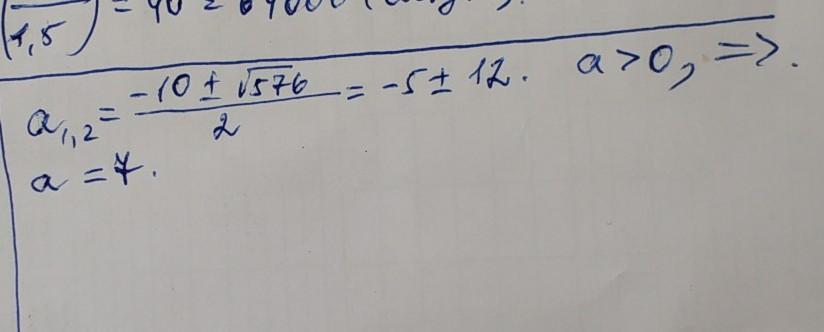 1,5
a₁,₂ = (-10 ± √576)/2 = -5 ± 12. a > 0, =>.
a = 7.